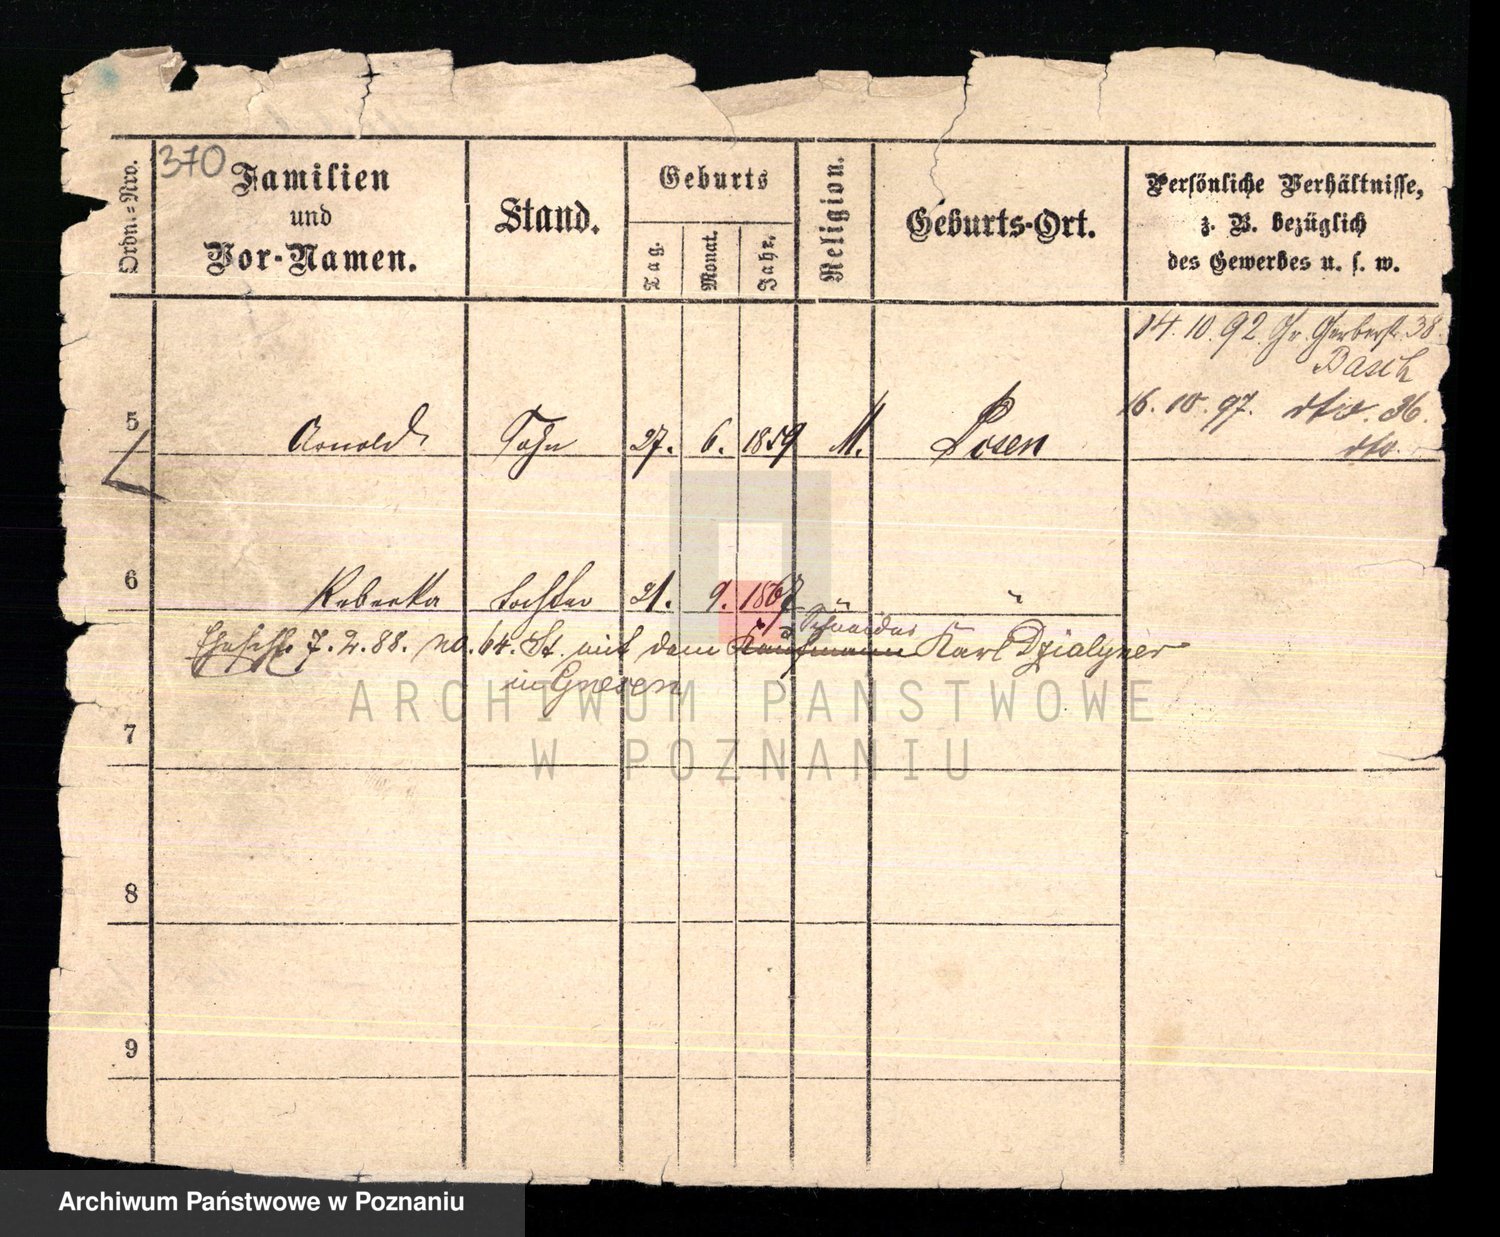 370
Ordn.-Nro.
Familien
und
Vor-Namen.
Stand.
Geburts
Tag.
Monat.
Jahr.
Religion.
Geburts-Ort.
Persönliche Verhältnisse,
z. B. bezüglich
des Gewerbes u. s. w.
14. 10. 92. Gr. Gerberstr. 38.
Basch
16. 10. 97. dto. 36.
dto.
5 Arnold Sohn 27. 6. 1859 M. Posen
6 Rebekka Tochter 21. 9. 1867 " "
Schneider
7. 2. 88. No. 64. St. mit dem Kaufmann Karl Dzialyner
in Gnesen
7
8
9
ARCHIWUM PAŃSTWOWE
W POZNANIU
Archiwum Państwowe w Poznaniu